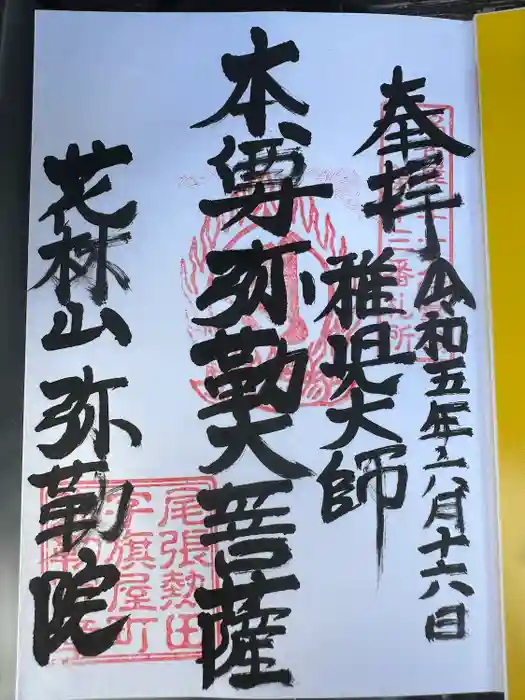 奉拝 令和五年六月十六日
雅児大師
本尊弥勒大菩薩
花林山 弥勒院
三番札所
尾張熱田
字旗屋町